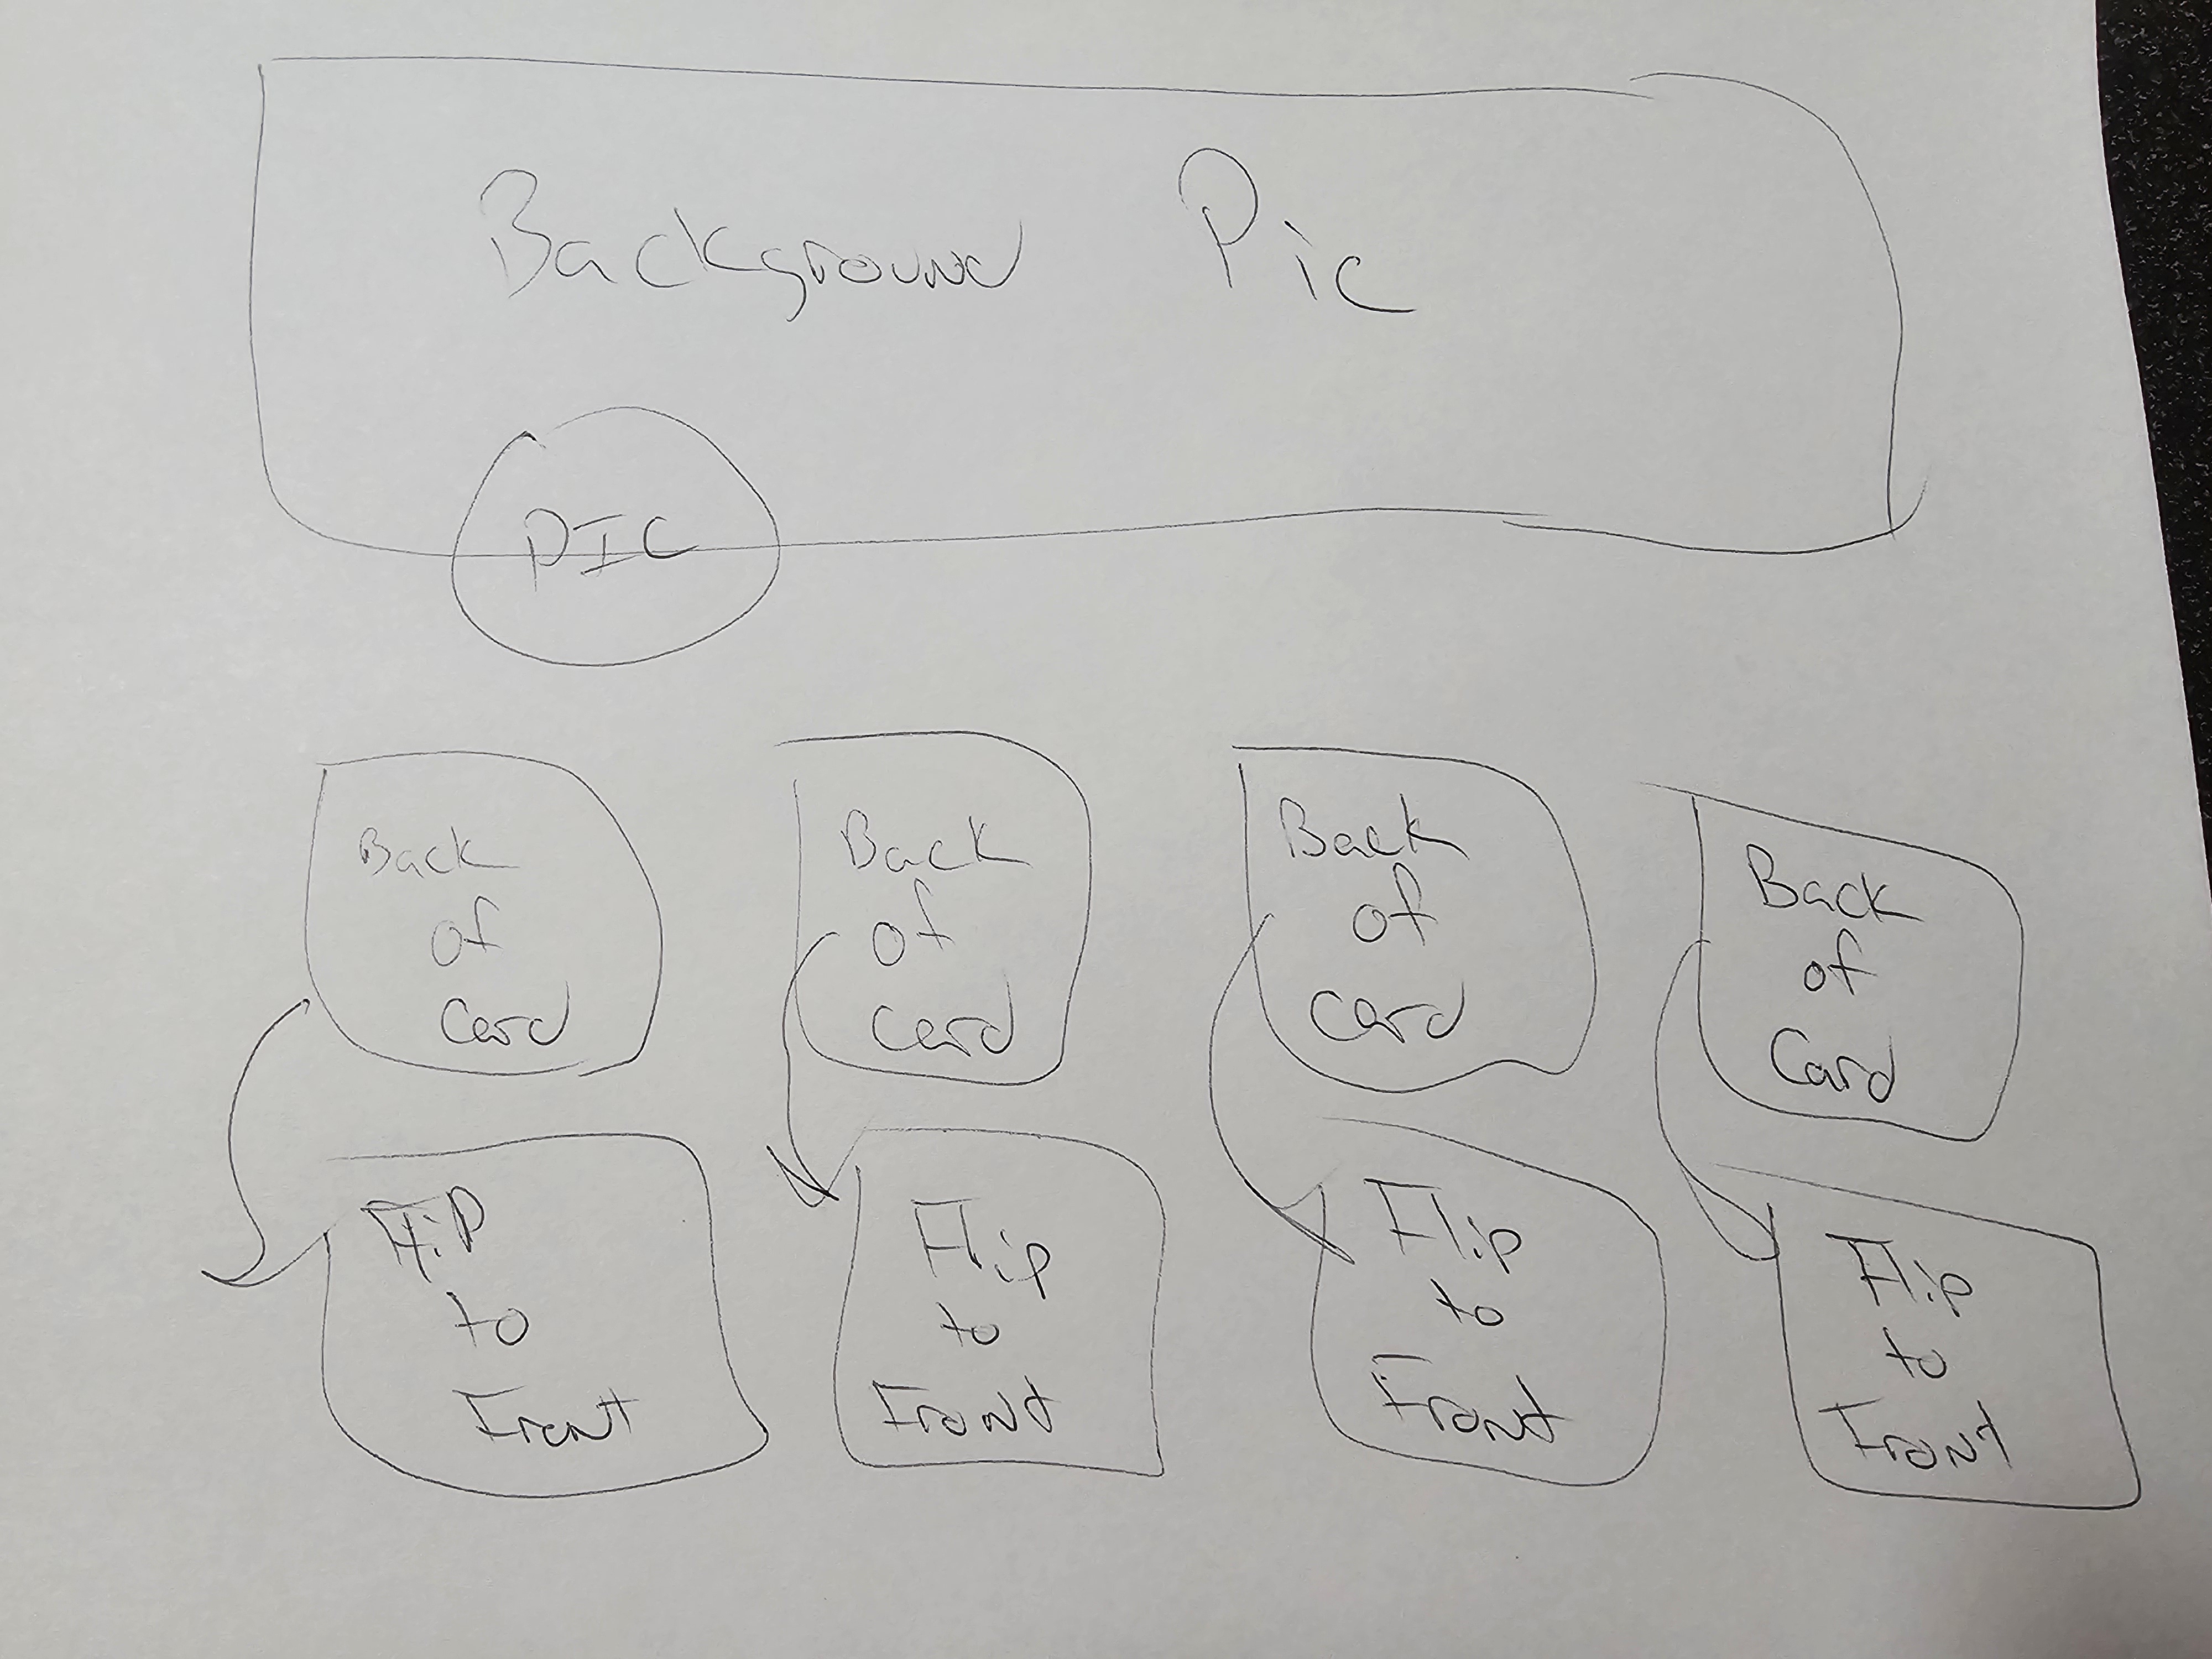 Background Pic
PIC
Back
of
Card
Back
of
Card
Back
of
Card
Back
of
Card
Flip
to
Front
Flip
to
Front
Flip
to
Front
Flip
to
Front